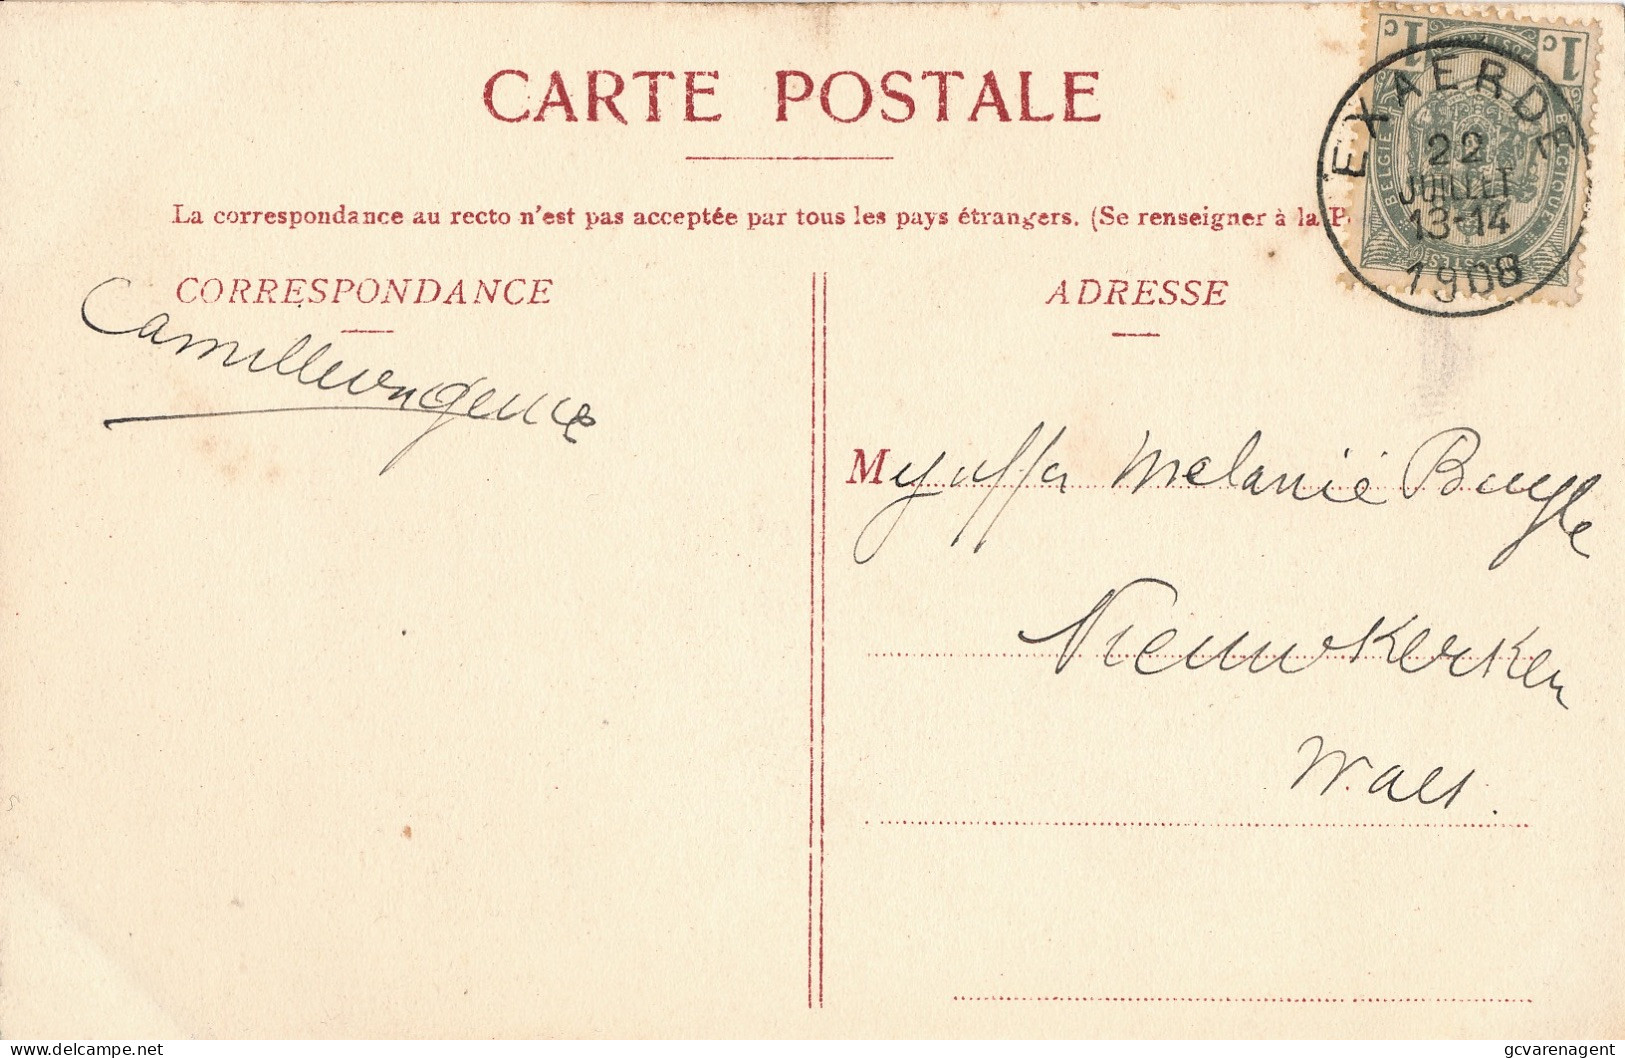 CARTE POSTALE
La correspondance au recto n'est pas acceptée par tous les pays étrangers. (Se renseigner à la P
CORRESPONDANCE
ADRESSE
1c 1c
BELGIE BELGIQUE
EXAERDE
22
JUILLET
13-14
1908
Camille
Mejuffer Melanie Buyle
Nieuwkerken
Waes.
delcampe.net
gcvarenagent